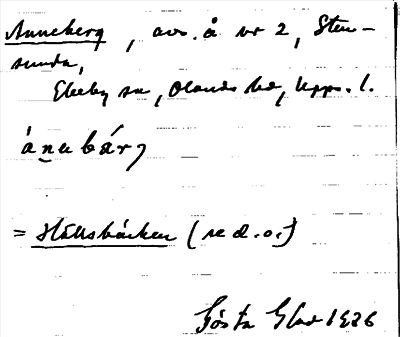 Anneberg, avs. å nr 2, Sten-
sunda,
Ekeby sn, Olands hd, Upps. l.
ánubárj
= Hällsbäcken (se d. o.)
Gösta Glad 1926